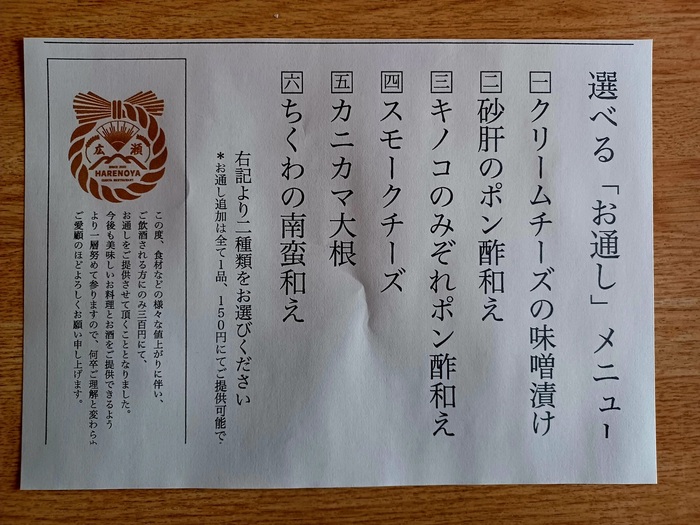 選べる「お通し」メニュー
一 クリームチーズの味噌漬け
二 砂肝のポン酢和え
三 キノコのみぞれポン酢和え
四 スモークチーズ
五 カニカマ大根
六 ちくわの南蛮和え
右記より二種類をお選びください
*お通し追加は全て1品、150円にてご提供可能で
広瀬
HARENOYA
この度、食材などの様々な値上がりに伴い、
ご飲酒される方にのみ三百円にて、
お通しをご提供させて頂くこととなりました。
今後も美味しいお料理とお酒をご提供できるよう
より一層努めて参りますので、何卒ご理解と変わら
ご愛顧のほどよろしくお願い申し上げます。